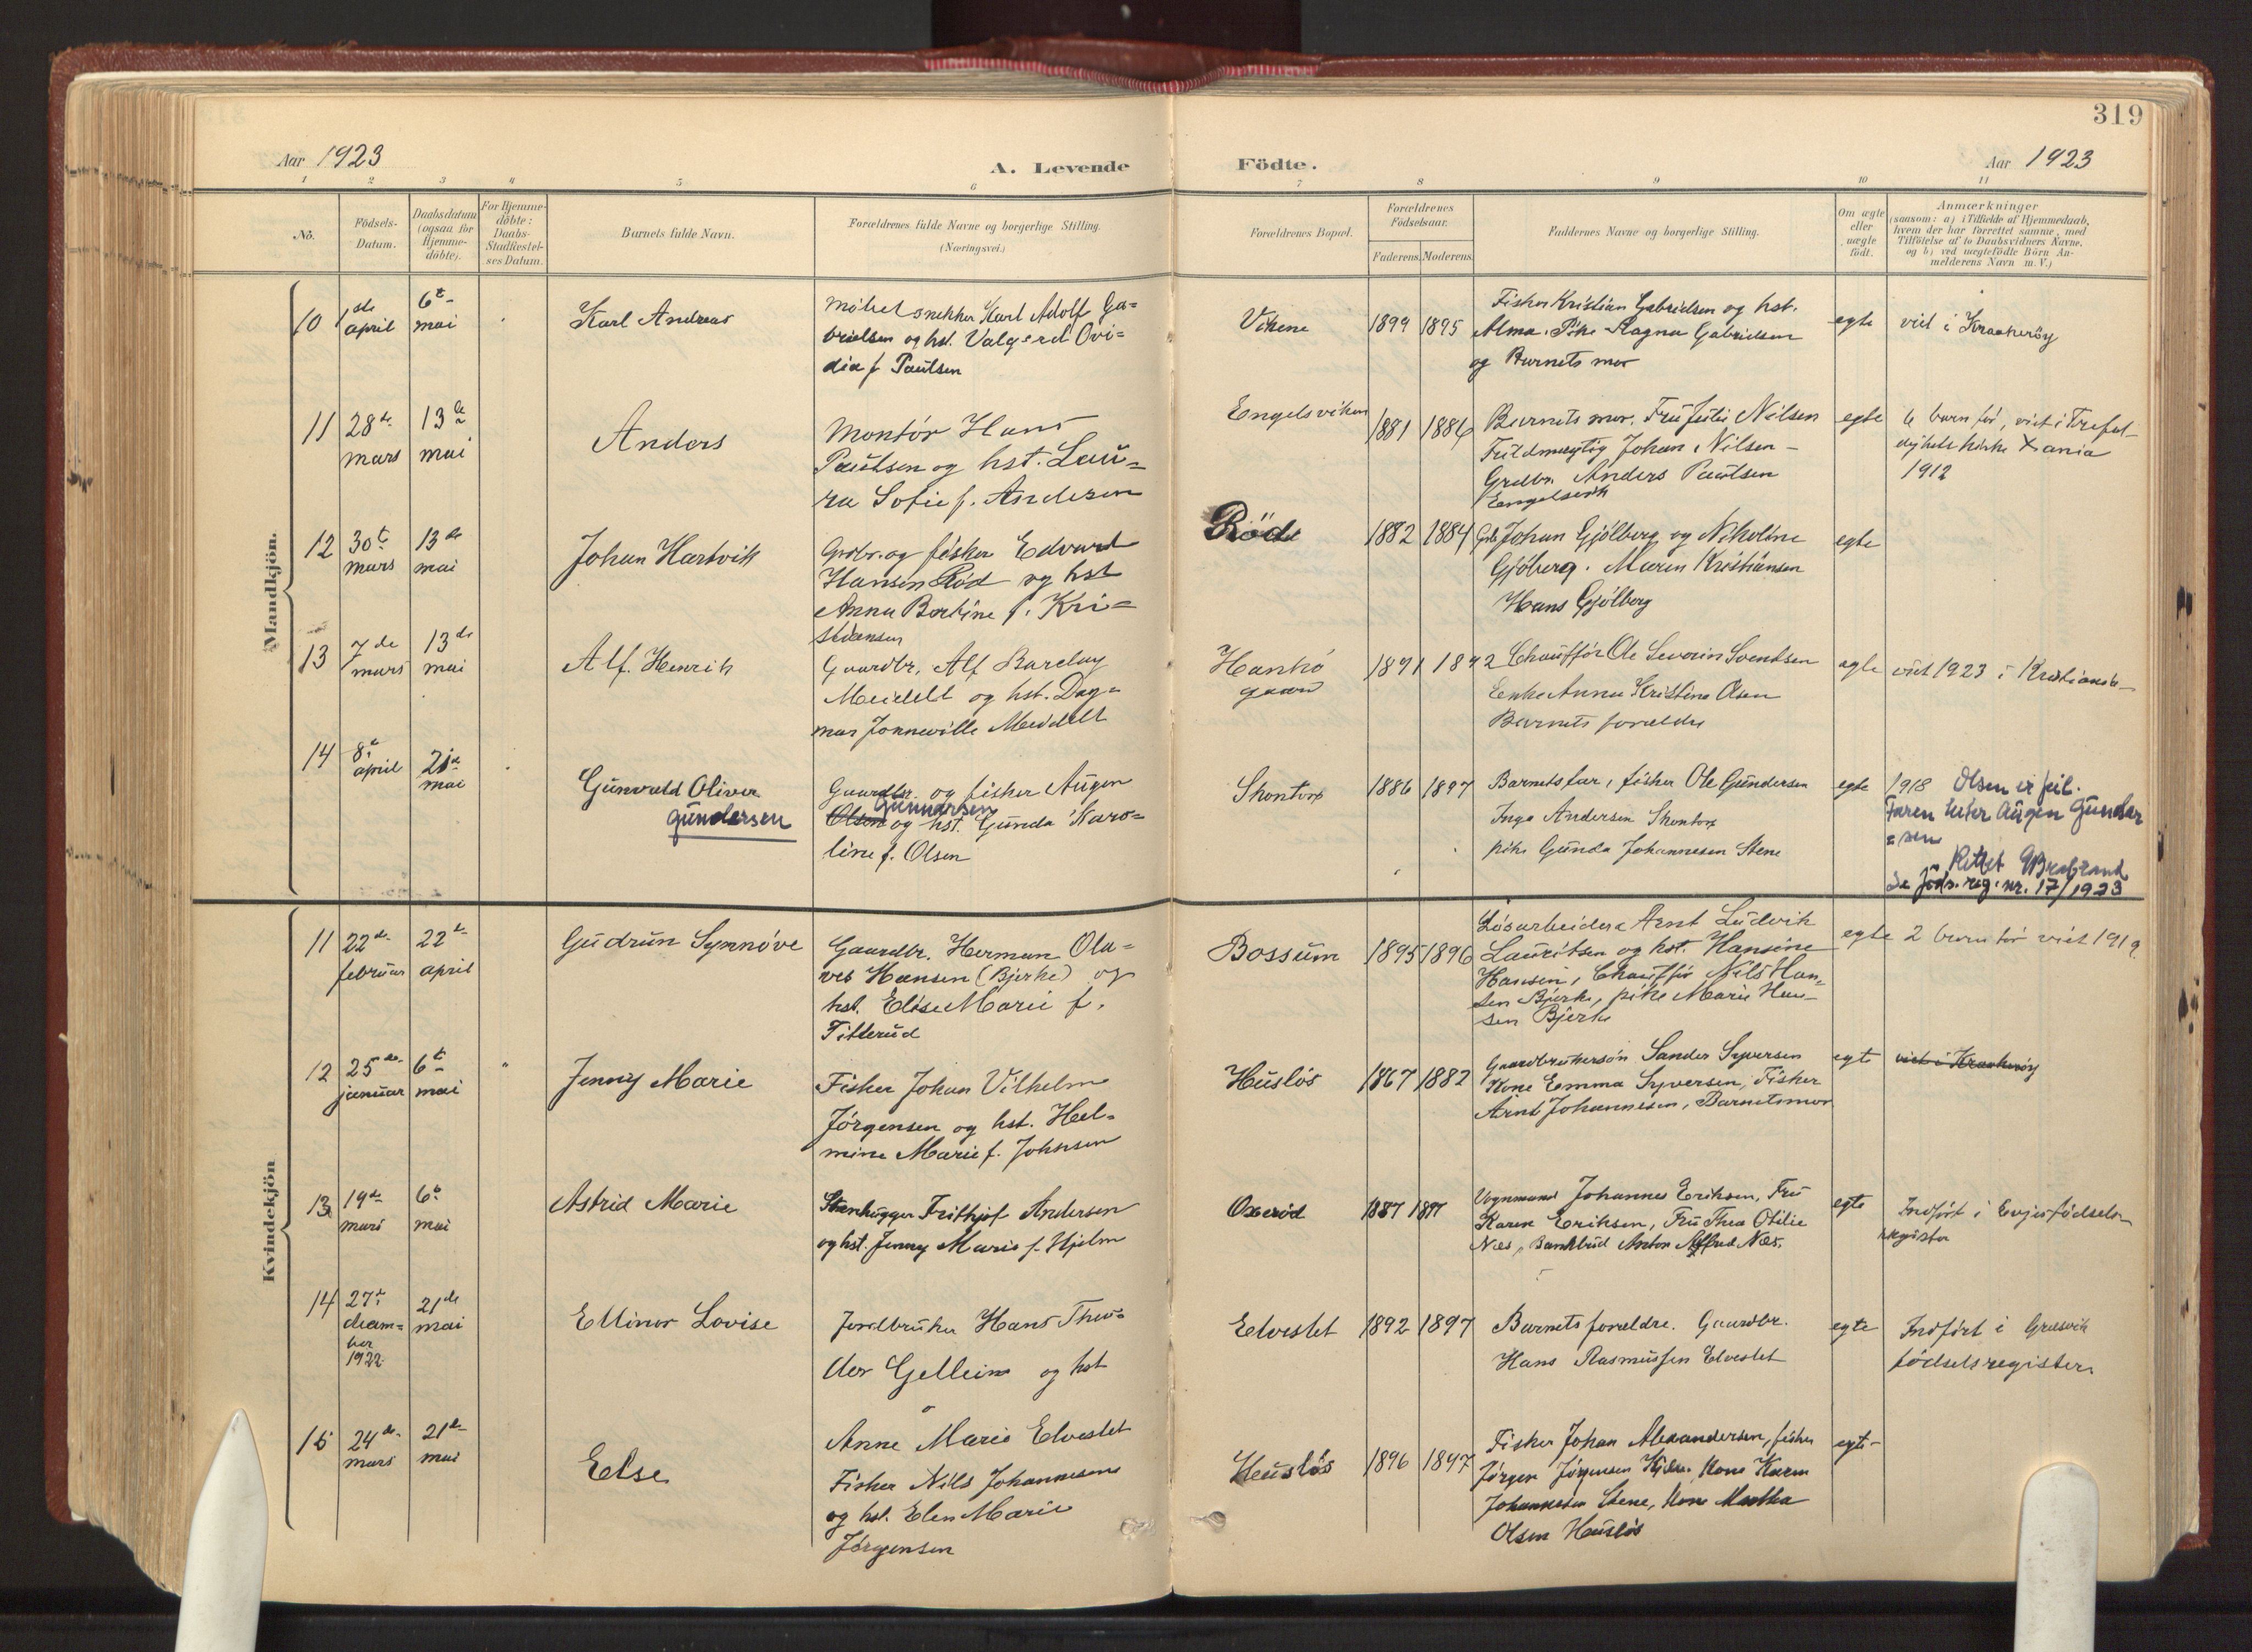 319
Aar 1923
A. Levende Födte.
Aar 1923
1 2 3 4 5 6 7 8 9 10 11
No.
Födsels-
Datum.
Daabsdatum
(ogsaa for
Hjemme-
döbte).
For Hjemme-
döbte:
Daabs-
Stadfæstel-
ses Datum.
Barnets fulde Navn.
Forældrenes fulde Navne og borgerlige Stilling.
(Næringsvei.)
Forældrenes Bopæl.
Forældrenes
Födselsaar.
Faderens. Moderens.
Faddernes Navne og borgerlige Stilling.
Om ægte
eller
uægte
födt.
Anmærkninger
(saasom: a) i Tilfælde af Hjemmedaab,
hvem der har forrettet samme, med
Tilföielse af to Daabsvidners Navne,
og b) ved uægtefödte Börn An-
melderens Navn m. V.)
Mandkjön.
10
1ste
april
6te
mai
Karl Andreas
Möbelsnekker Karl Adolf Ga=
brielsen og hst. Valgerd Ovi=
dia f. Paulsen
Vikene
1899 1895
Fisker Kristian Gabrielsen og hst.
Alma. Pike Ragna Gabrielsen
og Barnets mor
egte
viet i Kraakeröy
11
28de
mars
13de
mai
Anders
Montör Hans
Paulsen og hst. Lau=
ra Sofie f. Andersen
Engelsviken
1881 1886
Barnets mor. Fru Julie Nilsen
Fuldmægtig Johan Nilsen
Grdbr. Anders Paulsen
Engelsvik
egte
6 barn för, viet i Trefol
dighets kirke Xania
1912
12
30te
mars
13de
mai
Johan Hartvik
Grdbr. og fisker Edvard
Hansen Röd og hst
Anna Bertine f. Kri=
stiansen
Röds
1882 1884
Johan Gjölberg og Nikoline
Gjölberg. Maren Kristiansen
Hans Gjölberg
egte
13
7de
mars
13de
mai
Alf. Henrik
Gaardbr. Alf Barclay
Meidell og hst. Dag=
mar Jonneville Meidell
Hankö
gaard
1891 1892
Chaufför Ole Severin Svendsen
Enke Anna Kristine Olsen
Barnets forældre
egte
viet 1923 i Kristiania
14
8de
april
21de
mai
Gunvald Oliver
Gundersen
Gaardbr. og fisker Augen
Olsen Gundersen og hst. Gunda Karo=
line f. Olsen
Skontorp
1886 1897
Barnets far, fisker Ole Gundersen
Inga Andersen Skontorp
pike Gunda Johannesen Stene
egte
1918 Olsen er feil.
Faren heter Augen Gunder
=sen
Rettet GBrabrand
Se föds. reg. nr. 17/1923
Kvindekjön
11
22de
februar
22de
april
Gudrun Synnöve
Gaardbr. Herman Ola=
ves Hansen (Bjerke) og
hst. Elise Marie f.
Titterud
Bossum
1895 1896
Lösarbeider Arnt Ludvik
Lauritsen og hst. Hansine
Hansen, Chaufför Nils Han=
sen Bjerke, pike Marie Han=
sen Bjerke
egte
2 barn för viet 1919
12
25de
januar
6te
mai
"
Jenny Marie
Fisker Johan Vilhelm
Jörgensen og hst. Hel=
mine Marie f. Johnsen
Huslös
1867 1882
Gaardbrukersön Sander Syversen
Kone Emma Syversen, Fisker
Arnt Johannesen, Barnets mor
egte
viet i Kraakeröy
13
19de
mars
6te
mai
Astrid Marie
Stenhugger Frithjof Andersen
og hst. Jenny Marie f. Hjelm
Oxeröd
1887 1897
Vognmand Johannes Eriksen, Fru
Karen Eriksen, Fru Thea Otilie
Næs, Bankbud Anton Alfred Næs.
egte
Indfört i Evjes födsels
register
14
27de
decem=
ber
1922
21de
mai
Ellinor Lovise
Jordbruker Hans Theo=
dor Gellein og hst
Anne Marie Elveslet
Elveslet
1892 1897
Barnets forældre. Gaardbr.
Hans Rasmussen Elveslet
egte
Indfört i Græsvik
födselsregister
15
24de
mars
21de
mai
Else
Fisker Nils Johannesen
og hst. Elen Marie
Jörgensen
Huslös
1896 1897
Fisker Johan Alexandersen, fisker
Jörgen Jörgensen Kjære. Kone Karen
Johannesen Stene, Kone Martha
Olsen Huslös
egte